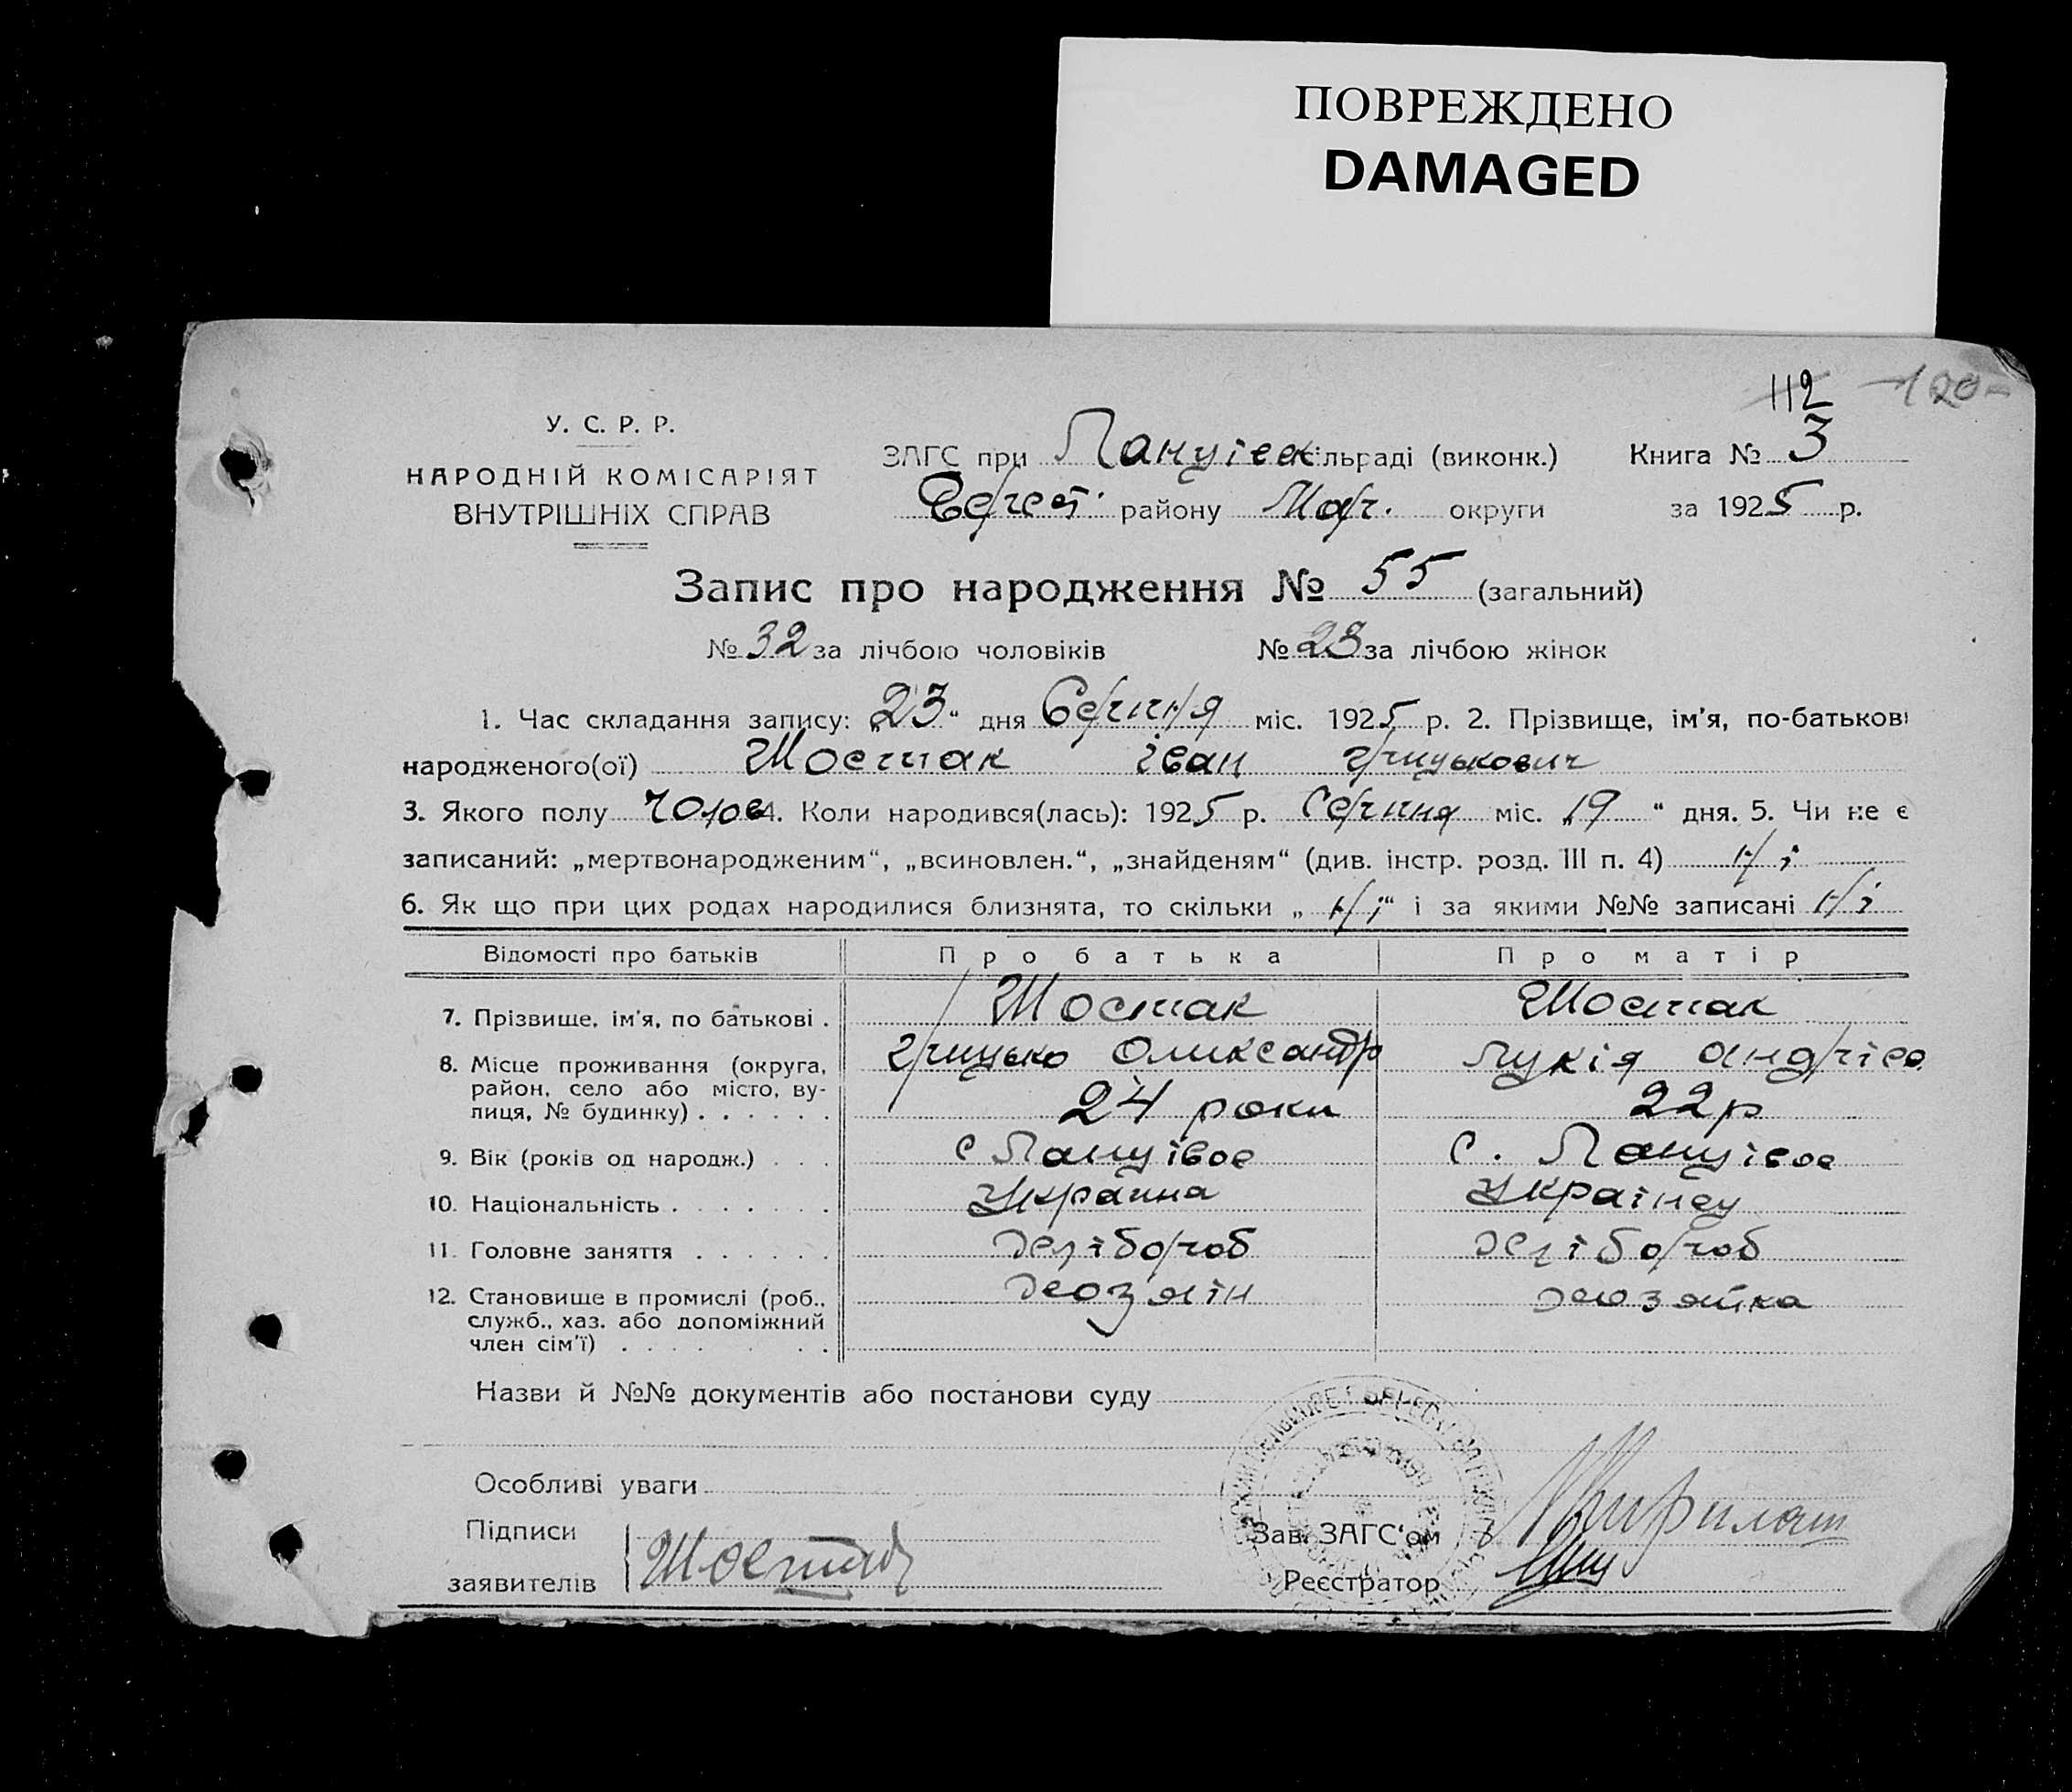 ПОВРЕЖДЕНО
DAMAGED
112 120
У. С. Р. Р.
НАРОДНІЙ КОМІСАРІЯТ
ВНУТРІШНІХ СПРАВ
ЗАГС при сільраді (виконк.) Книга № 3
району округи за 1925 р.
Запис про народження № 55 (загальний)
№ 32 за лічбою чоловіків № 23 за лічбою жінок
1. Час складання запису: „23“ дня Серпня міс. 1925 р. 2. Прізвище, ім'я, по-батькові
народженого(ої) Шостак іван Грицькович
3. Якого полу чолов 4. Коли народився(лась): 1925 р. Серпня міс. „19“ дня. 5. Чи не є
записаний: „мертвонародженим“, „всиновлен.“, „знайденям“ (див. інстр. розд. III п. 4) Ні
6. Як що при цих родах народилися близнята, то скільки „ Ні “ і за якими №№ записані Ні
Відомості про батьків Про батька Про матір
7. Прізвище, ім'я, по батькові . Шостак Шостак
8. Місце проживання (округа, Грицько Олександр Лукія Андрієв
район, село або місто, ву-
лиця, № будинку) . . . . . . 24 роки 22 р
9. Вік (років од народж.) . . . с с.
10. Національність . . . . . . . Україна Українец
11. Головне заняття . . . . . . хліборob хлібороб
12. Становище в промислі (роб., хозяін хозяйка
служб., хаз. або допоміжний
член сім'ї) . . . . . . .
Назви й №№ документів або постанови суду
Особливі уваги
Підписи Зав. ЗАГС'ом
заявителів Шостак Реєстратор